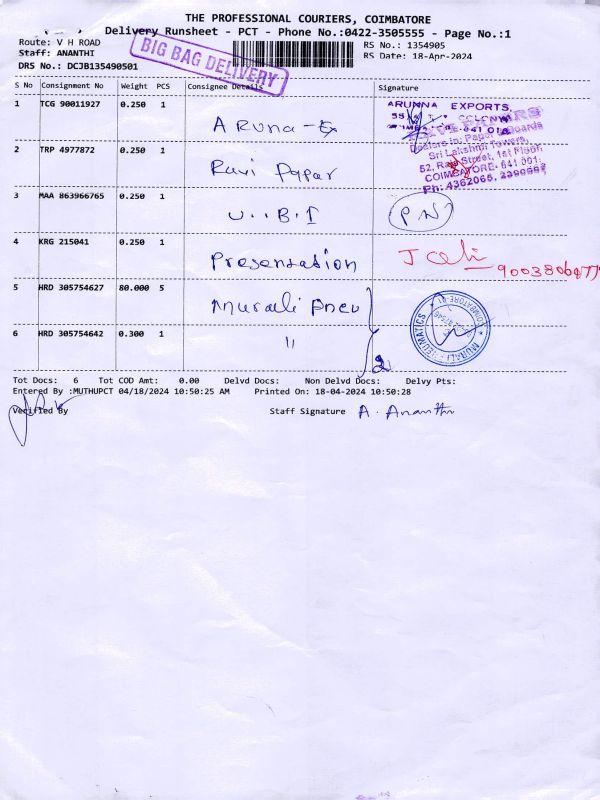 THE PROFESSIONAL COURIERS, COIMBATORE
Delivery Runsheet - PCT - Phone No.:0422-3505555 - Page No.:1
Route: V H ROAD
Staff: ANANTHI
DRS No.: DCJB135490501
BIG BAG DELIVERY
RS No.: 1354905
RS Date: 18-Apr-2024
S No Consignment No Weight PCS Consignee Details Signature
1 TCG 90011927 0.250 1 Aruna - Ex
ARUNNA EXPORTS,
2 TRP 4977872 0.250 1 Ravi Papar
Sri Lakshmi Towers,
52, Raja Street, 1st Floor
COIMBATORE- 641 001.
Ph: 4362065,
3 MAA 863966765 0.250 1 U..B.I
4 KRG 215041 0.250 1 Presentation
5 HRD 305754627 80.000 5 Murali Pneu
MURALI PNEUMATICS
COIMBATORE
6 HRD 305754642 0.300 1 "
2
Tot Docs: 6 Tot COD Amt: 0.00 Delvd Docs: Non Delvd Docs: Delvy Pts:
Entered By :MUTHUPCT 04/18/2024 10:50:25 AM Printed On: 18-04-2024 10:50:28
Verified By Staff Signature A. Ananthi